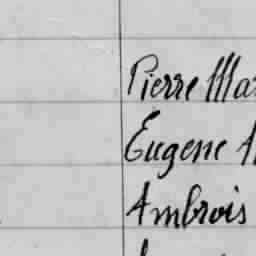 Pierre Mar
Eugene
Ambrois